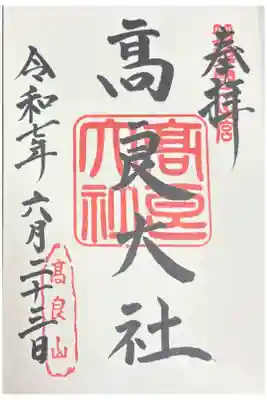 奉拝
髙良大社
髙良大社
令和七年 六月二十三日
髙良山